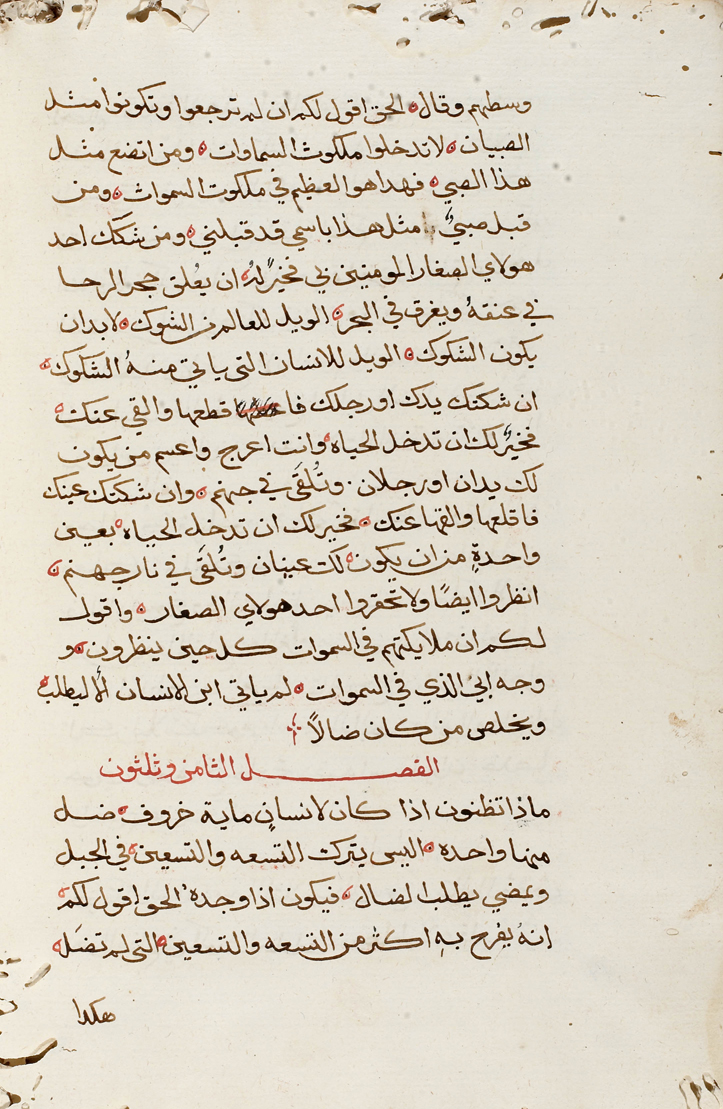 وسطهم وقال الحق اقول لكم ان لم ترجعوا وتكونوا مثل
الصبيان لا تدخلوا ملكوث السماوات ومن اتضع مثل
هذا الصبي فهداهو العظيم في ملكوت السمواث ومن
قبل صبيٌ مثل هذا باسمي قد قبلني ومن شكك احد
هولاي الصغار المومنين بي فخيرًلهُ ان يعُلق حجر الرحا
في عنقهُ ويغرق في البحر الويل للعالم من الشوك لابدان
يكون الشكوك الويل للانسان التى ياتي منهُ الشكوك
ان شكتك يدك او رجلك فا قطعها والقي عنك
فخيرٌ لك ان تدخل الحياه وانت اعرج واعسم من يكون
لك يدان او رجلان وتُلقَى في جهنم وان شكتك عينك
فاقلعها والقهاعنك فخير لك ان تدخل الحياه بعين
واحدةٍ من ان يكون لك عينان وتُلقَى في نار جهنم
انظروا ايضًا ولا تحقروا احد هولاي الصغار واقول
لكم ان ملايكتهم في السموات كل حين ينظرون و
وجه ابي الذي في السموات لم ياتي ابن الانسان الّا ليطلب
ويخلص من كان ضالاً
الفصل الثامن وثلثون
ماذا تظنون اذا كان لانسانٍ ماية خروف ضل
منها واحده اليس يترك التسعه والتسعين في الجبل
ويمضي يطلب الضال فيكون اذا وجده الحق اقول لكم
انهُ يفرح بهِ اكثر من التسعه والتسعين التى لم تضَل
هكدا